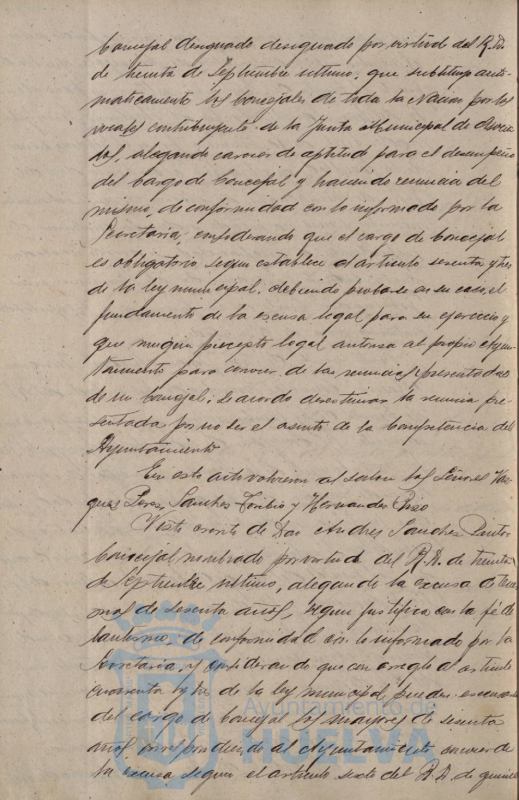 Concejal designado designado por virtud del R. D.
de treinta de Septiembre ultimo, que substituye auto-
maticamente los Concejales de toda la Nacion por los
vocales contribuyente de la Junta Municipal de Asocia-
dos, alegando carecer de aptitud para el desempeño
del cargo de Concejal y haciendo renuncia del
mismo, de conformidad con lo informado por la
Secretaria, considerando que el cargo de Concejal
es obligatorio segun establece el articulo sesenta y tres
de la ley municipal, debiendo probarse en su caso, el
fundamento de la excusa legal para su ejercicio y
que ningun precepto legal autoriza al propio Ayun-
tamiento para conocer de las renuncias presentadas
de un Concejal; Se acordo desestimar la renuncia pre-
sentada por no ser el asunto de la Competencia del
Ayuntamiento
En este acto volvieron al salon los Señores Vaz-
quez Perez, Sanchez Toribio y Hernandez
Visto escrito de Don Andres Sanchez
Concejal nombrado por virtud del R. D. de treinta
de Septiembre ultimo, alegando la excusa de ser ma-
yor de sesenta años, segun justifica con la fé de
bautismo, de conformidad con lo informado por la
Secretaria, y considerando que con arreglo al articulo
cuarenta y tres de la ley municipal, pueden excusarse
del cargo de Concejal los mayores de sesenta
años correspondiendo al Ayuntamiento conocer de
la excusa segun el articulo sexto del R. D. de quince
Ayuntamiento de
HUELVA